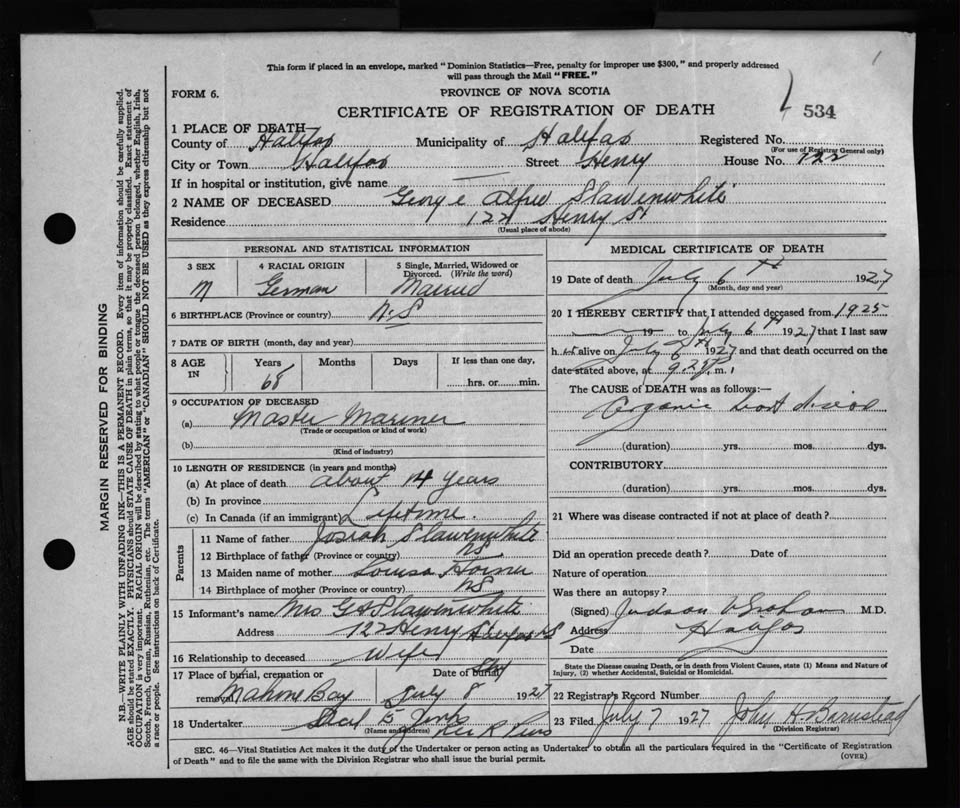 This form if placed in an envelope, marked "Dominion Statistics—Free, penalty for improper use $300," and properly addressed
will pass through the Mail "FREE."
FORM 6.
PROVINCE OF NOVA SCOTIA
CERTIFICATE OF REGISTRATION OF DEATH
534
1 PLACE OF DEATH
County of Halifax Municipality of Halifax Registered No.
(For use of Registrar General only)
City or Town Halifax Street Henry House No. 122
If in hospital or institution, give name
2 NAME OF DECEASED George Alfred Slawenwhite
Residence 122 Henry St
(Usual place of abode)
PERSONAL AND STATISTICAL INFORMATION
3 SEX
M
4 RACIAL ORIGIN
German
5 Single, Married, Widowed or
Divorced. (Write the word)
Married
6 BIRTHPLACE (Province or country) N.S
7 DATE OF BIRTH (month, day and year)
8 AGE
IN
Years
68
Months
Days
If less than one day,
hrs. or min.
9 OCCUPATION OF DECEASED
(a) Master Mariner
(Trade or occupation or kind of work)
(b)
(Kind of industry)
10 LENGTH OF RESIDENCE (in years and months)
(a) At place of death about 14 years
(b) In province
(c) In Canada (if an immigrant) Lifetime.
Parents
11 Name of father Josiah Slawenwhite
12 Birthplace of father (Province or country) NS
13 Maiden name of mother Louisa
14 Birthplace of mother (Province or country) NS
15 Informant's name Mrs G A Slawenwhite
Address 122 Henry St Halifax NS
16 Relationship to deceased Wife
17 Place of burial, cremation or Date of burial
removal Mahone Bay July 8 1927
18 Undertaker
(Name and address)
MEDICAL CERTIFICATE OF DEATH
19 Date of death July 6th 1927
(Month, day and year)
20 I HEREBY CERTIFY that I attended deceased from 1925
19 to July 6th 1927 that I last saw
h im alive on July 6th 1927 and that death occurred on the
date stated above, at m.
The CAUSE of DEATH was as follows:—
Organic heart disease
(duration) yrs. mos. dys.
CONTRIBUTORY
(duration) yrs. mos. dys.
21 Where was disease contracted if not at place of death?
Did an operation precede death? Date of
Nature of operation
Was there an autopsy?
(Signed) Judson V Graham M.D.
Address Halifax
Date
State the Disease causing Death, or in death from Violent Causes, state (1) Means and Nature of
Injury, (2) whether Accidental, Suicidal or Homicidal.
22 Registrar's Record Number
23 Filed July 7 1927 John H Barnstead
(Division Registrar)
SEC. 46—Vital Statistics Act makes it the duty of the Undertaker or person acting as Undertaker to obtain all the particulars required in the "Certificate of Registration
of Death" and to file the same with the Division Registrar who shall issue the burial permit.
(OVER)
MARGIN RESERVED FOR BINDING
N.B.—WRITE PLAINLY WITH UNFADING INK—THIS IS A PERMANENT RECORD. Every item of information should be carefully supplied.
AGE should be stated EXACTLY. PHYSICIANS should STATE CAUSE OF DEATH in plain terms, so that it may be properly classified. Exact statement of
OCCUPATION is very important. RACIAL ORIGIN will be described by stating to what people or tongue the deceased person belonged, whether English, Irish,
Scotch, French, German, Russian, Ruthenian, etc. The terms "AMERICAN" or "CANADIAN" SHOULD NOT BE USED as they express citizenship but not
a race or people. See instructions on back of Certificate.